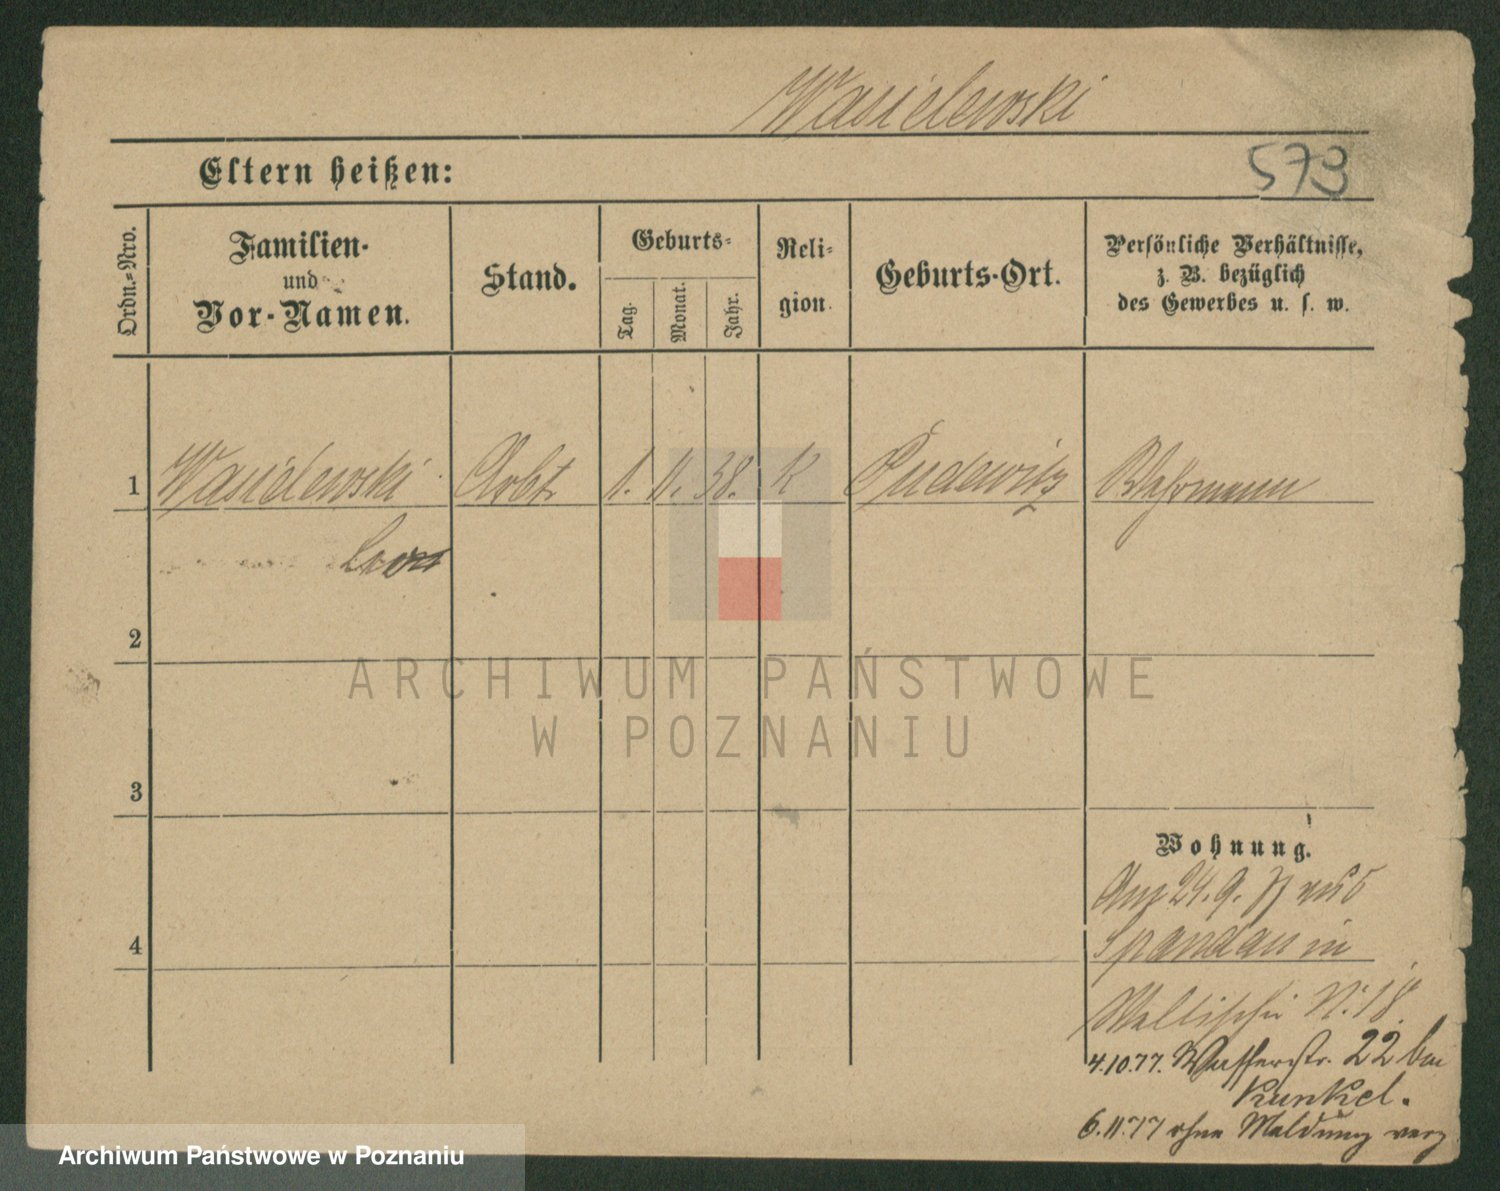 Wasielewski
573
Eltern heißen:
Ordn.=Nro.
Familien-
und
Vor-Namen.
Stand.
Geburts=
Tag.
Monat.
Jahr.
Reli=
gion.
Geburts-Ort.
Persönliche Verhältnisse,
z. B. bezüglich
des Gewerbes u. s. w.
1 Wasielewski Arbt. 1. 11. 38. K Pudewitz
Leon
2
ARCHIWUM PAŃSTWOWE
W POZNANIU
3
Wohnung.
24. 9. 77
4
Spandau in
Wallischei N. 18.
4.10.77. Wasserstr. 22 bei
Kunkel.
6.11.77 ohne Meldung verz
Archiwum Państwowe w Poznaniu